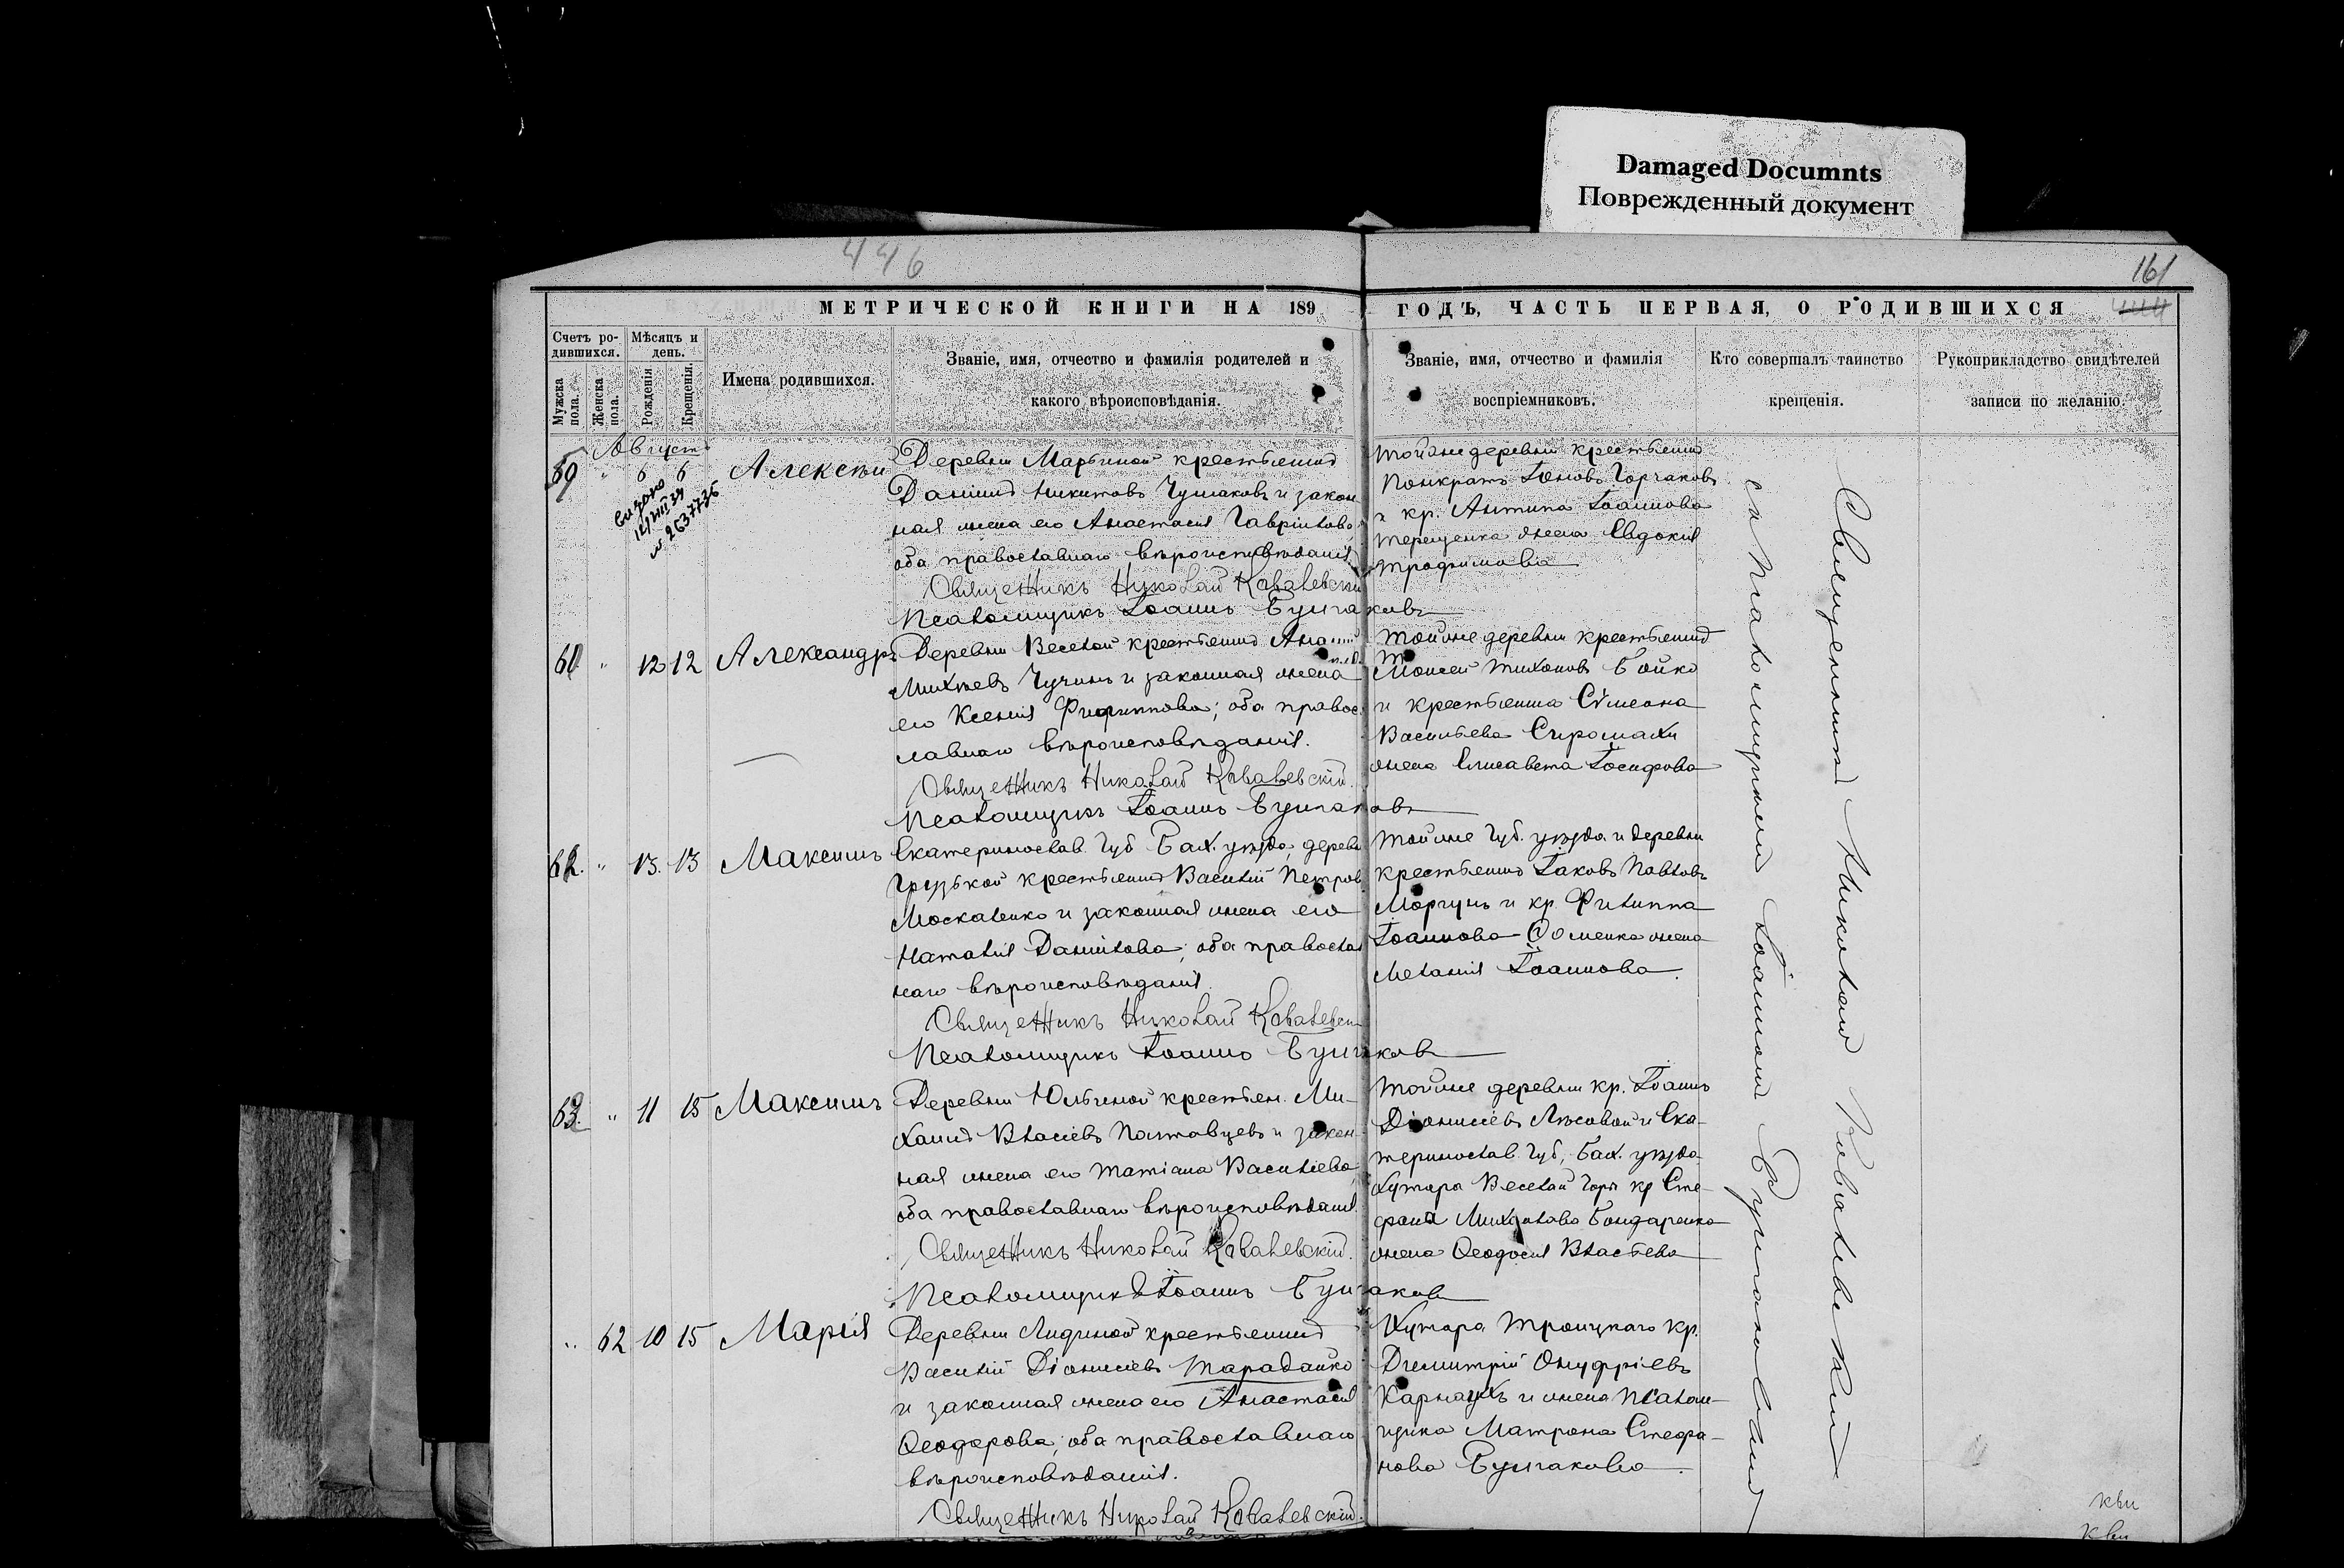 Damaged Documnts
Поврежденный документ
446
161
МЕТРИЧЕСКОЙ КНИГИ НА 189 ГОДЪ, ЧАСТЬ ПЕРВАЯ, О РОДИВШИХСЯ
Счетъ ро-
дившихся.
Мужска
пола.
Женска
пола.
Мѣсяцъ и
день.
Рожденія
Крещенія.
Имена родившихся.
Званіе, имя, отчество и фамилія родителей и
какого вѣроисповѣданія.
Званіе, имя, отчество и фамилія
воспріемниковъ.
Кто совершалъ таинство
крещенія.
Рукоприкладство свидѣтелей
записи по желанію.
Августъ
59 " 6 6 Алексѣй
№ 2637735
Деревни Марьиной крестьянинъ
Даніилъ Никитовъ Чумаковъ и закон
ная жена его Анастасія Гавріилова,
оба православнаго вѣроисповѣданія
Священникъ Николай Ковалевскій
Псаломщикъ Іоаннъ Булгаковъ
тойже деревни крестьянинъ
Понкратъ Іоновъ Горчаковъ
и кр. Антипа Іоаннова
Терещенка жена Евдокія
Трофимова
60 " 12 12 Александръ
Деревни Веселой крестьянинъ
Михѣевъ Чучинъ и законная жена
его Ксенія Филиппова; оба правос
лавнаго вѣроисповѣданія.
Священникъ Николай Ковалевскій.
Псаломщикъ Іоаннъ Булгаковъ
тойже деревни крестьянинъ
Моисей Тихоновъ Бойко
и крестьянина Симеона
Васильева Сиромахи
жена Елисавета Іосифова
62. " 13. 13 Максимъ
Екатеринослав. Губ Бах. уѣзда, дерев
Грузской крестьянинъ Василій Петров
Москаленко и законная жена его
Наталія Даніилова; оба православ
наго вѣроисповѣданія.
Священникъ Николай Ковалевскій
Псаломщикъ Іоаннъ Булгаковъ
тойже Губ. уѣзда и деревни
крестьянинъ Іаковъ Павловъ
Моргунъ и кр. Филиппа
Іоаннова Ѳоменка жена
Меланія Іоаннова.
63. " 11 15 Максимъ
Деревни Юльиной крестьян. Ми-
хаилъ Власіевъ Полтавцевъ и закон-
ная жена его Татіана Васильева,
оба православнаго вѣроисповѣданія.
Священникъ Николай Ковалевскій.
Псаломщикъ Іоаннъ Булгаковъ
тойже деревни кр. Іоаннъ
Діонисіевъ Лѣсовой и Ека-
теринослав. Губ, Бах. уѣзда
хутора Веселой Горы кр Сте-
фана Михайлова Бондаренко
жена Ѳеодосія Власьева
" 62 10 15 Марія
Деревни Лидиной крестьянинъ
Василій Діонисіевъ Тарадайко
и законная жена его Анастасія
Ѳеодорова; оба православнаго
вѣроисповѣданія.
Священникъ Николай Ковалевскій.
Хутора Троицкаго кр.
Димитрій Онуфріевъ
Карнаухъ и жена Псалом-
щика Матрона Стефа-
нова Булгакова.
Священникъ Николай Ковалевскій
съ Псаломщикомъ Іоанномъ Булгаковымъ